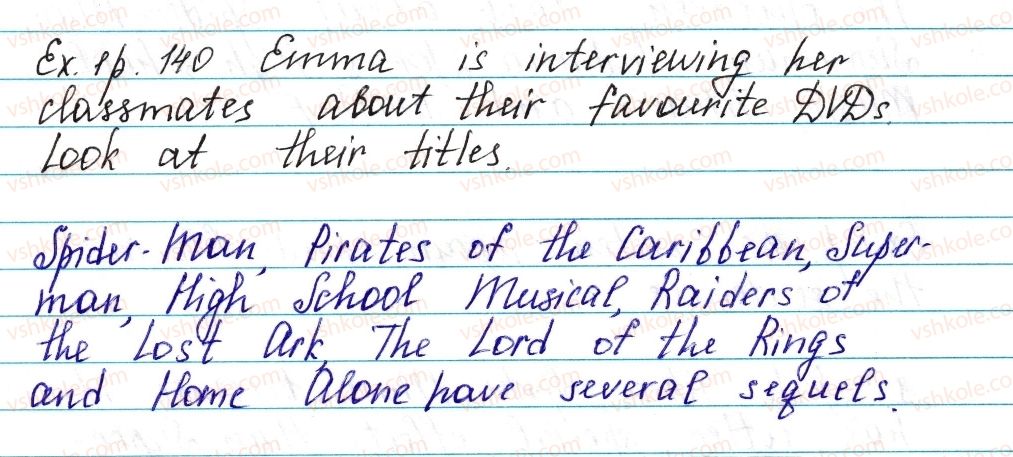 Ex. 1p. 140 Emma is interviewing her
classmates about their favourite DVDs.
Look at their titles.
Spider-Man, Pirates of the Caribbean, Super-
man, High School Musical, Raiders of
the Lost Ark, The Lord of the Rings
and Home Alone have several sequels.